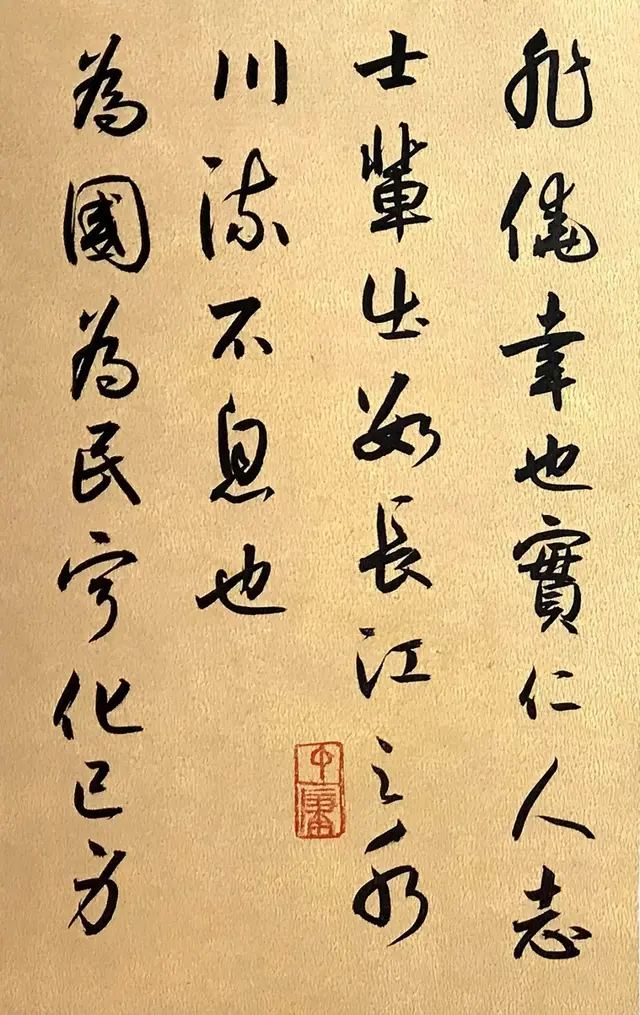 非僥幸也實仁人志
士輩出如長江之水
川流不息也
為國為民寧化己方
中庸